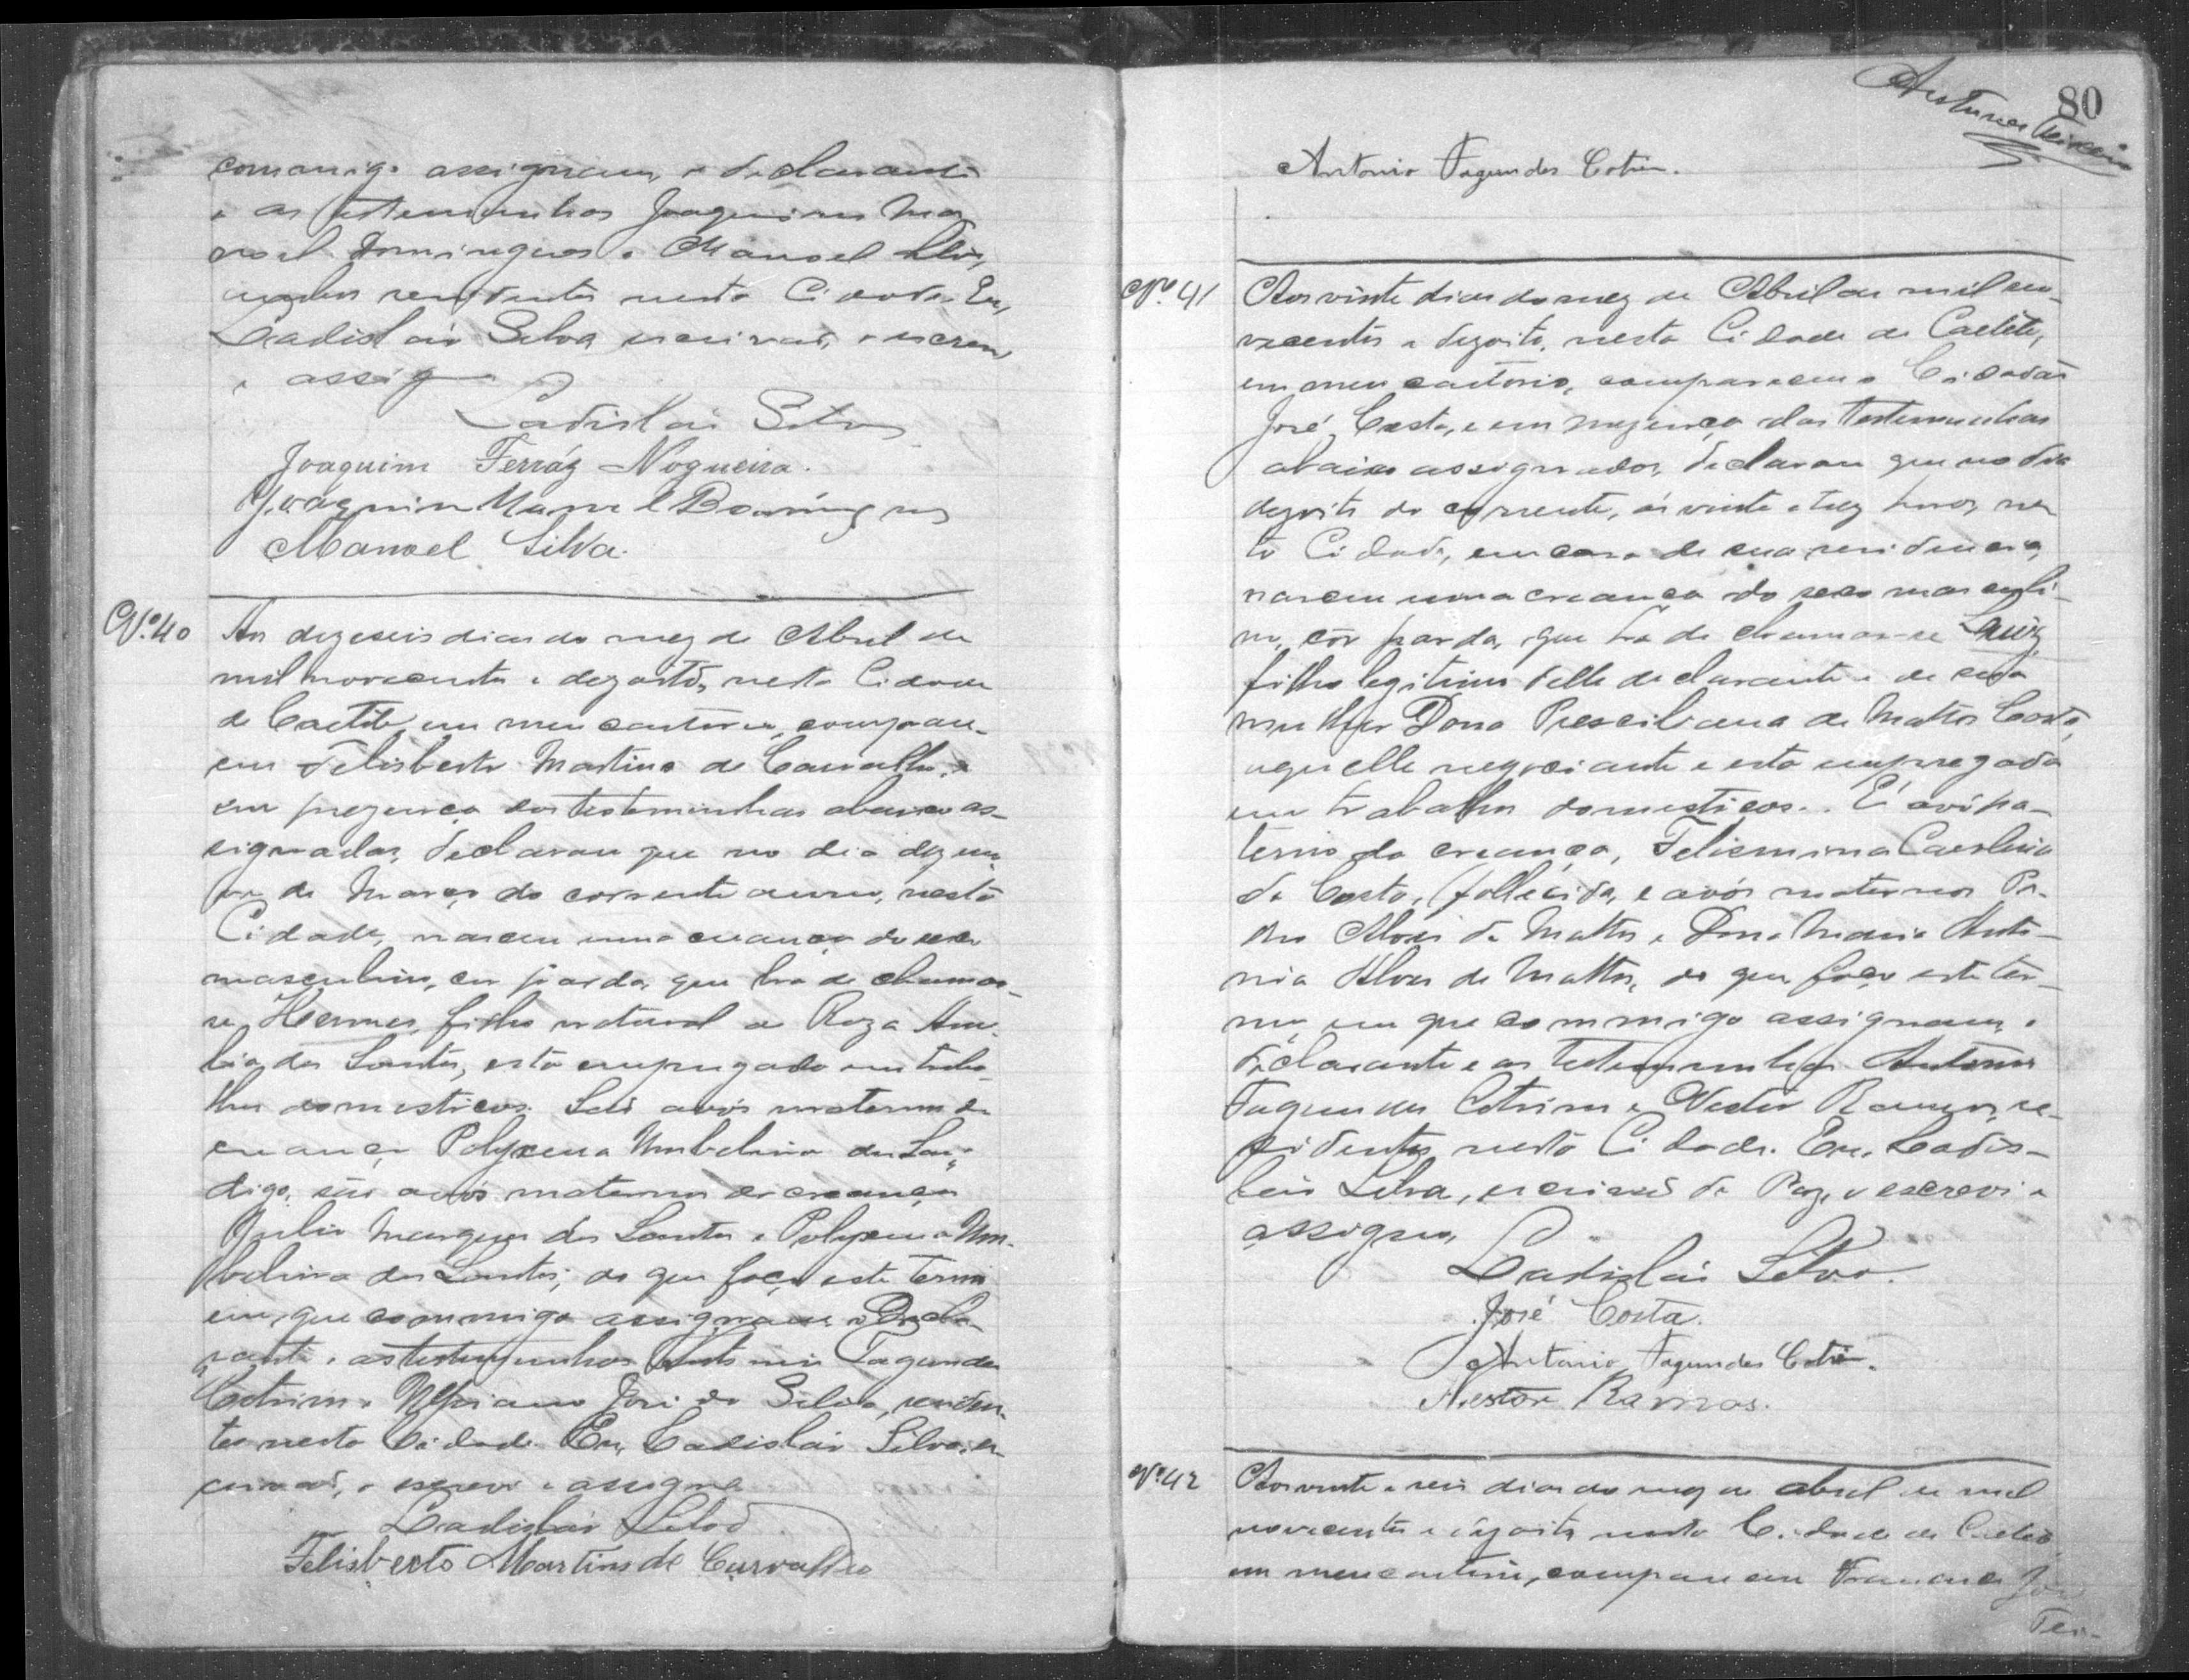 commigo assignam, o declarante
e as testemunhas Joaquim Ma-
noel Domingues e Manoel Silva,
ambos residentes nesta Cidade. Eu,
Ladisláo Silva escrivão, o escrevi
e assigno
Ladisláo Silva
Joaquim Ferráz Nogueira.
Joaquim Manoel Domingues
Manoel Silva.
Nº 40
Aos dezeseis dias do mez de Abril de
mil novecentos e dezoito, nesta Cidade
de Caetité em meu cartorio, compare-
ceu Felisberto Martins de Carvalho, e
em prezença das testeminhas abaixo as-
signadas, declarou que no dia dezenove
de Março do corrente anno, nesta
Cidade, nasceu uma creança do sexo
masculino, cor parda, que ha de chamar-
se Hermes, filho natural de Roza Ame-
lia dos Santos, esta empregada em traba-
lhos domesticos. São avós maternos da
creança Polyxena Umbelina dos San,
digo, são avós maternos da creança
Julio Marques dos Santos e Polyxena Um-
belina dos Santos; do que faço este termo
em que commigo assignam o Decla-
rante e as testemunhas Antonio Fagundes
Cotrim e Ulpiano José da Silva, residen-
tes nesta Cidade. Eu, Ladisláo Silva, es-
crivão, o escrevi e assigno
Ladisláo Silva
Felisberto Martins de Carvalho
80
Antonio Fagundes Cotrim.
Nº 41
Aos vinte dias do mez de Abril de mil no-
vecentos e dezoito, nesta Cidade de Caetité,
em meu cartorio, compareceu o Cidadão
José Costa, e em prezença das testemunhas
abaixo assignadas, declarou que no dia
dezoito do corrente, ás vinte e trez horas, nes-
ta Cidade, em casa de sua residencia,
nasceu uma creança do sexo masculi-
no, côr parda, que ha de chamar-se Luiz,
filho legitimo delle declarante e de sua
mulher Dona Presciliana de Mattos Costa,
aquelle negociante e esta empregada
em trabalhos domesticos. É avó pa-
terna da creança, Felicimina Carolina
da Costa, fallecida, e avós maternos Pe-
dro Alves de Mattos e Dona Maria Anto-
nia Alves de Mattos, do que faço este ter-
mo em que commigo assignam, o
declarante e as testemunhas Antonio
Fagundes Cotrim e Nestor Ramos, re-
sidentes nesta Cidade. Eu, Ladis-
láo Silva, escrivão de Paz, o escrevi e
assigno,
Ladisláo Silva.
José Costa.
Antonio Fagundes Cotrim.
Nestor Ramos.
Nº 42
Aos vinte e seis dias do mez de abril de mil
novecentos e dezoito, nesta Cidade de Caetité
em meu cartorio, compareceu Francisco José
Fer-